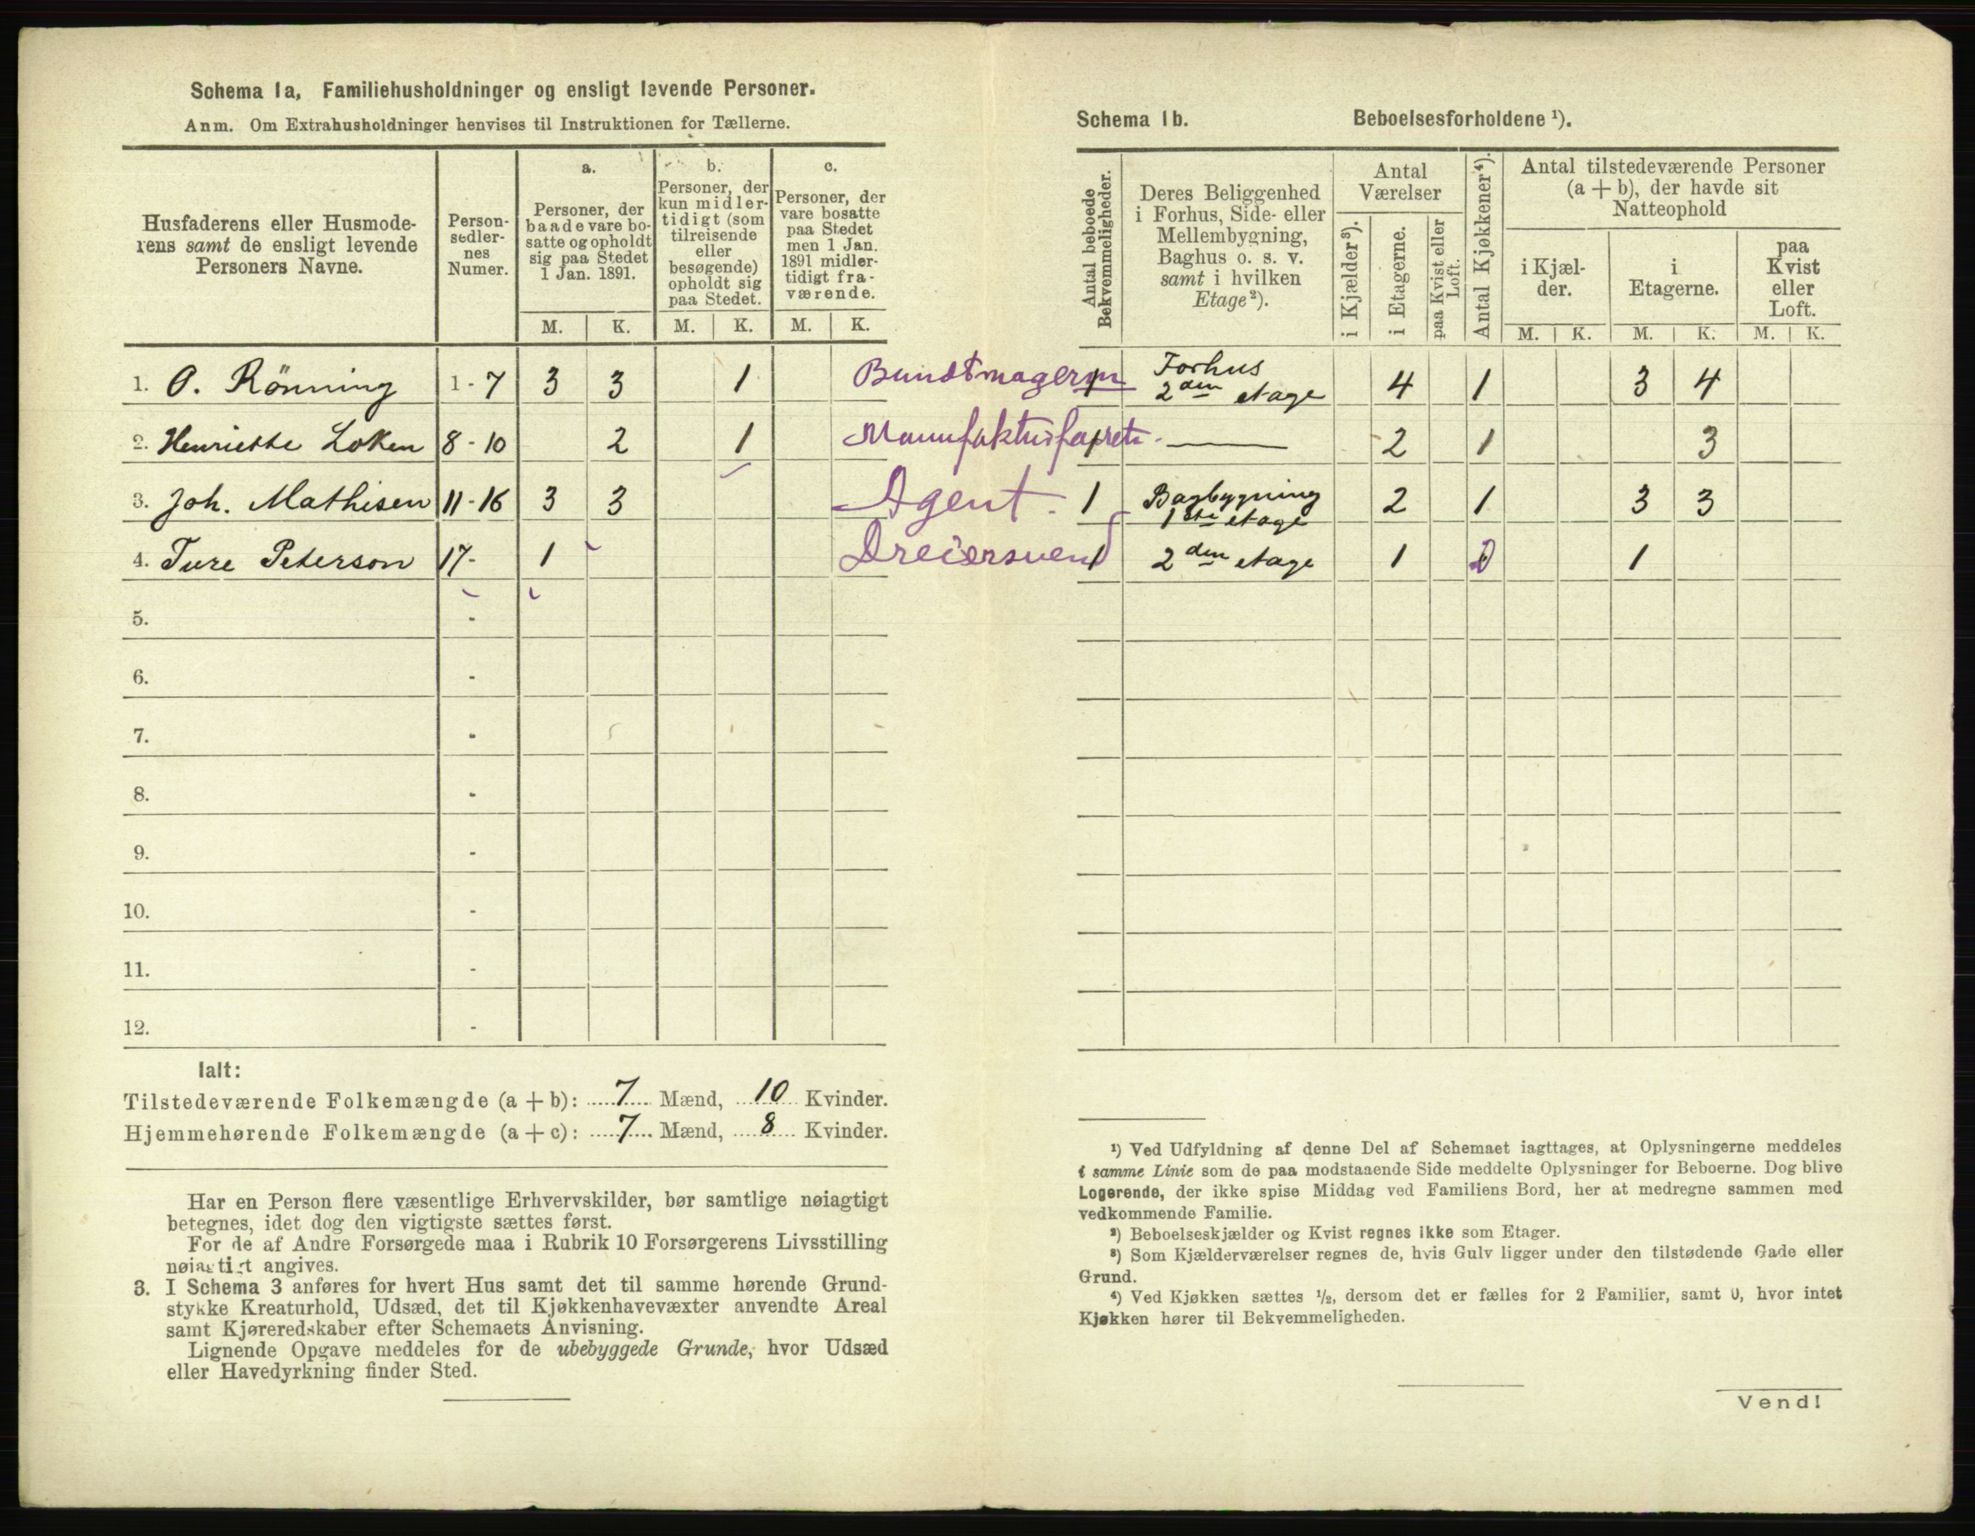 Schema 1a, Familiehusholdninger og ensligt levende Personer.
Anm. Om Extrahusholdninger henvises til Instruktionen for Tællerne.
Husfaderens eller Husmode-
rens samt de ensligt levende
Personers Navne.
Person-
sedler-
nes
Numer.
a.
Personer, der
baade vare bo-
satte og opholdt
sig paa Stedet
1 Jan. 1891.
b.
Personer, der
kun midler-
tidigt (som
tilreisende
eller
besøgende)
opholdt sig
paa Stedet.
c.
Personer, der
vare bosatte
paa Stedet
men 1 Jan.
1891 midler-
tidigt fra-
værende.
M. K. M. K. M. K.
1. O. Rönning 1 - 7 3 3 1 Bundtmagerm
2. Henriette Loken 8 - 10 2 1
3. Joh. Mathisen 11 - 16 3 3 Agent.
4. Ture Peterson 17- 1 Dreiersvend
5. -
6. -
7. -
8. -
9. -
10. -
11. -
12. -
Ialt:
Tilstedeværende Folkemængde (a + b): 7 Mænd, 10 Kvinder.
Hjemmehørende Folkemængde (a + c): 7 Mænd, 8 Kvinder.
Har en Person flere væsentlige Erhvervskilder, bør samtlige nøiagtigt
betegnes, idet dog den vigtigste sættes først.
For de af Andre Forsørgede maa i Rubrik 10 Forsørgerens Livsstilling
nøiagtigt angives.
3. I Schema 3 anføres for hvert Hus samt det til samme hørende Grund-
stykke Kreaturhold, Udsæd, det til Kjøkkenhavevæxter anvendte Areal
samt Kjøreredskaber efter Schemaets Anvisning.
Lignende Opgave meddeles for de ubebyggede Grunde, hvor Udsæd
eller Havedyrkning finder Sted.
Schema 1b. Beboelsesforholdene ¹).
Antal beboede
Bekvemmeligheder.
Deres Beliggenhed
i Forhus, Side- eller
Mellembygning,
Baghus o. s. v.
samt i hvilken
Etage²).
Antal
Værelser
i Kjælder³).
i Etagerne.
paa Kvist eller
Loft.
Antal Kjøkkener⁴).
Antal tilstedeværende Personer
(a + b), der havde sit
Natteophold
i Kjæl-
der.
i
Etagerne.
paa
Kvist
eller
Loft.
M. K. M. K. M. K.
1 Forhus
2den etage 4 1 3 4
1 — 2 1 3
1 Bagbygning
1ste etage 2 1 3 3
1 2den etage 1 0 1
¹) Ved Udfyldning af denne Del af Schemaet iagttages, at Oplysningerne meddeles
i samme Linie som de paa modstaaende Side meddelte Oplysninger for Beboerne. Dog blive
Logerende, der ikke spise Middag ved Familiens Bord, her at medregne sammen med
vedkommende Familie.
²) Beboelseskjælder og Kvist regnes ikke som Etager.
³) Som Kjælderværelser regnes de, hvis Gulv ligger under den tilstødende Gade eller
Grund.
⁴) Ved Kjøkken sættes ½, dersom det er fælles for 2 Familier, samt 0, hvor intet
Kjøkken hører til Bekvemmeligheden.
Vend!